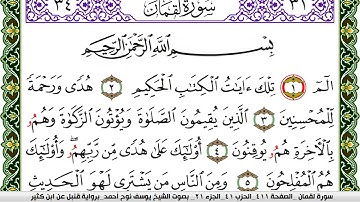 ٣٤ سورة لقمان ٣١
بِسْمِ اللَّهِ الرَّحْمَٰنِ الرَّحِيمِ
الٓمٓ ١ تِلْكَ ءَايَٰتُ الْكِتَٰبِ الْحَكِيمِ ٢ هُدًى وَرَحْمَةً
لِّلْمُحْسِنِينَ ٣ الَّذِينَ يُقِيمُونَ الصَّلَوٰةَ وَيُؤْتُونَ الزَّكَوٰةَ وَهُمُۥ
بِالْءَاخِرَةِ هُمُۥ يُوقِنُونَ ٤ أُوْلَٰٓئِكَ عَلَىٰ هُدًى مِّن رَّبِّهِمُۥ وَأُوْلَٰٓئِكَ
هُمُ الْمُفْلِحُونَ ٥ وَمِنَ النَّاسِ مَن يَشْتَرِي لَهْوَ الْحَدِيثِ
سورة لقمان _ الصفحة ٤١١ _ الحزب ٤١ _ الجزء ٢١ _ بصوت الشيخ يوسف نوح أحمد _ برواية قنبل عن ابن كثير